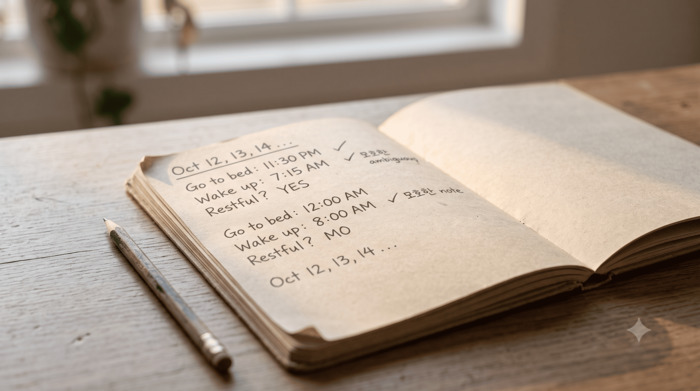 Oct 12, 13, 14 ...
Go to bed: 11:30 PM ✓
Wake up: 7:15 AM ✓ 모호한
ambiguang
Restful? YES
Go to bed: 12:00 AM
Wake up: 8:00 AM ✓ 모호한 note
Restful? MO
Oct 12, 13, 14 ...